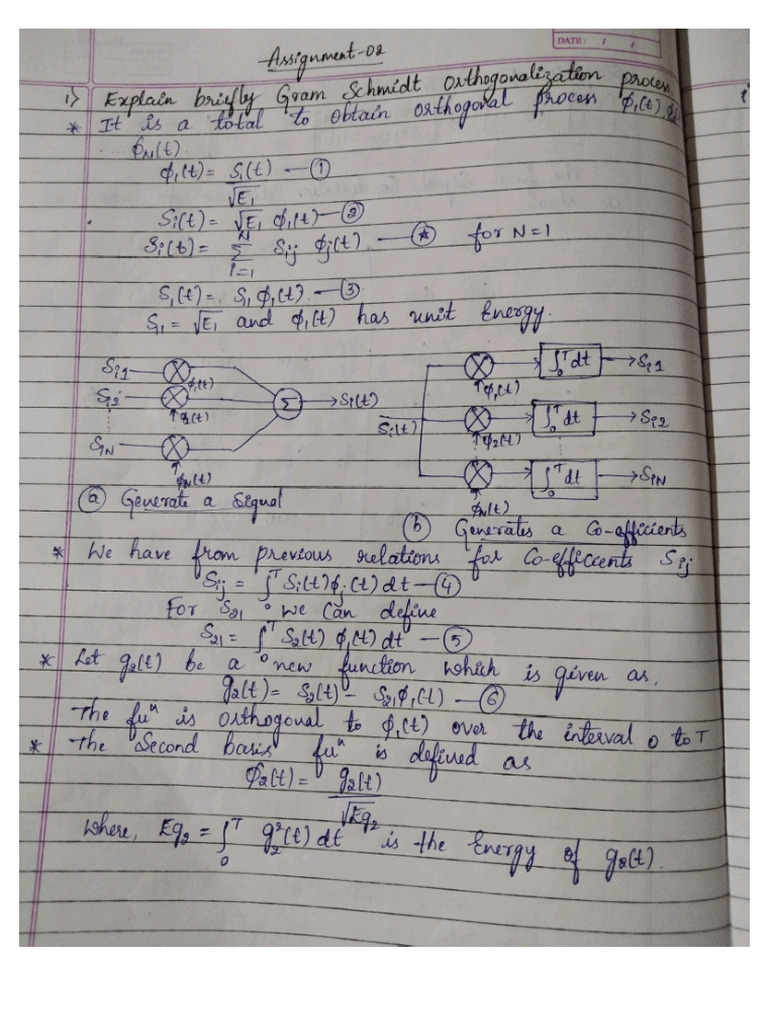 DATE: / /
Assignment-02
1) Explain briefly Gram Schmidt Orthogonalization process.
* It is a total to obtain orthogonal process ϕ1(t),
... ϕN(t)
ϕ1(t) = S1(t) / √E1 —①
S1(t) = √E1 ϕ1(t) —②
Si(t) = N Σ i=1 Sij ϕj(t) —(*) for N=1
S1(t) = S11 ϕ1(t) —③
S11 = √E1 and ϕ1(t) has unit Energy.
Si1 ⊗ ϕ1(t)
Si2 ⊗ ϕ2(t)
SiN ⊗ ϕN(t)
Σ → Si(t)
(a) Generate a Signal
Si(t)
⊗ ϕ1(t) ∫0^T dt → Si1
⊗ ϕ2(t) ∫0^T dt → Si2
⊗ ϕN(t) ∫0^T dt → SiN
(b) Generates a Co-afficients
* We have from previous relations for Co-efficcents Sij
Sij = ∫0^T Si(t) ϕj(t) dt —④
For S21 we can define
S21 = ∫0^T S2(t) ϕ1(t) dt —⑤
* Let g2(t) be a new function which is given as,
g2(t) = S2(t) - S21ϕ1(t) —⑥
The fuⁿ is orthogonal to ϕ1(t) over the interval 0 to T
* The Second basis fuⁿ is defined as
ϕ2(t) = g2(t) / √Eg2
where, Eg2 = ∫0^T g2²(t) dt is the Energy of g2(t).